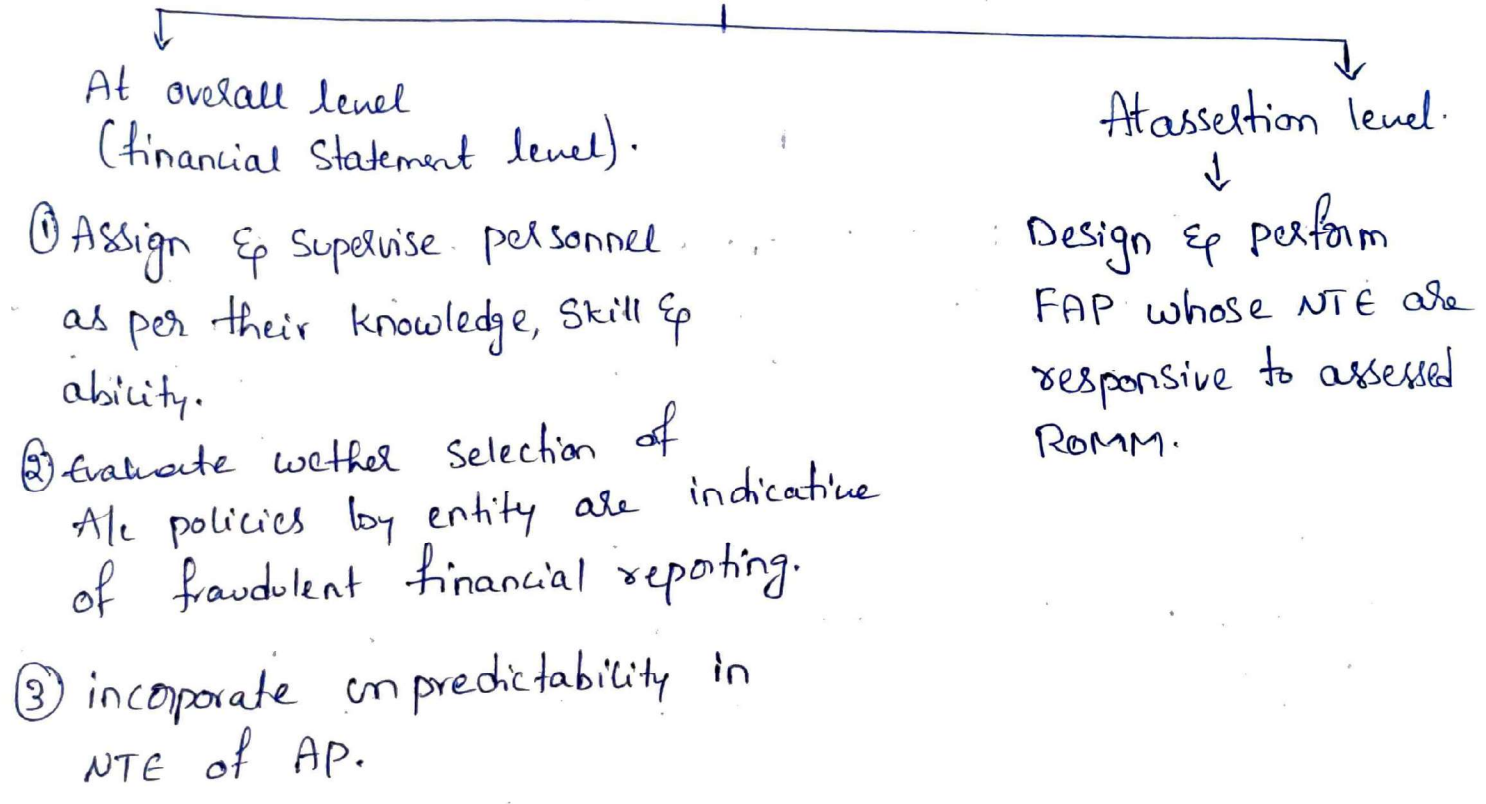 At overall level
(financial Statement level).
① Assign & Supervise personnel
as per their knowledge, Skill &
ability.
② Evaluate wether Selection of
A/c policies by entity are indicative
of fraudulent financial reporting.
③ incorporate unpredictability in
NTE of AP.
At assertion level.
Design & perform
FAP whose NTE are
responsive to assessed
ROMM.